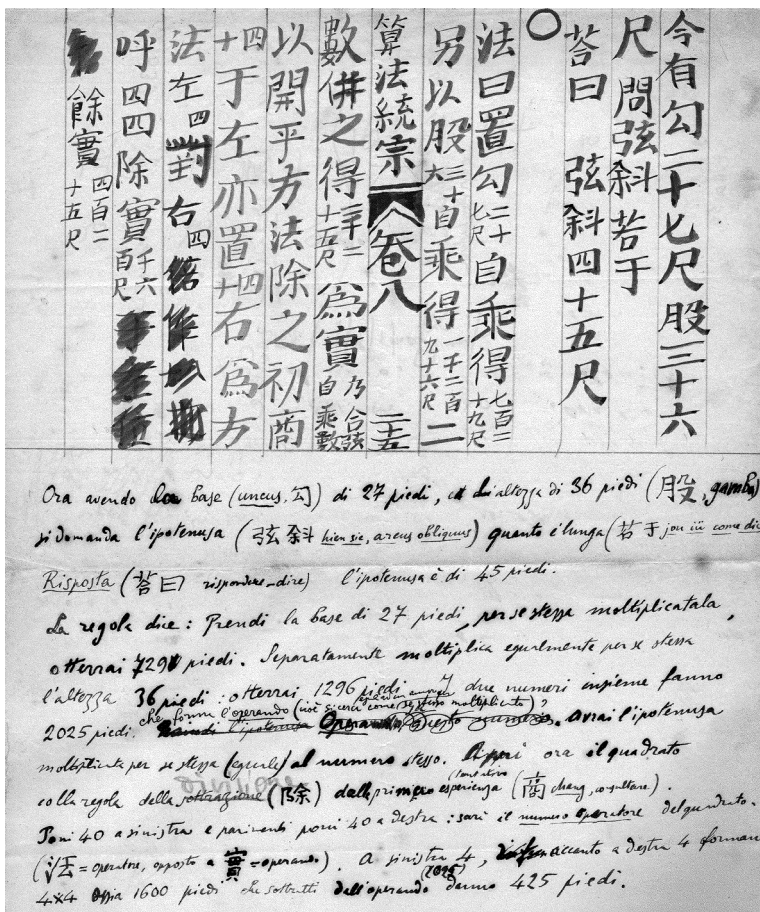 今有勾二十七尺股三十六
尺問弦斜若于
荅曰 弦斜四十五尺
○
法曰置勾二十七尺自乘得七百二十九尺
另以股三十六自乘得一千二百九十六尺二
算法統宗 卷八 二十五
數併之得二千二十五尺為實乃合弦自乘數
以開平方法除之初商
四十于左亦置四十右為方
法左四對右四
呼四四除實千六百尺
餘實四百二十五尺
Ora avendo la base (uncus, 勾) di 27 piedi, e di altezza di 36 piedi (股, gamba)
si domanda l'ipotenusa (弦斜 hien sie, arcus obliquus) quanto è lunga (若于 jou iü come di
Risposta (荅曰 rispondere-dire) l'ipotenusa è di 45 piedi.
La regola dice: Prendi la base di 27 piedi, per se stessa moltiplicatala,
otterrai 729 piedi. Separatamente moltiplica egualmente per se stessa
l'altezza 36 piedi: otterrai 1296 piedi. I due numeri insieme fanno
2025 piedi. che formi l'operando (cioè si cerchi come se stesso moltiplicato)? Avrai l'ipotenusa
moltiplicata per se stessa (eguale) al numero stesso. Apri ora il quadrato
colla regola della sottrazione (除) dalla prima esperienza (tentativo) (商 chang, consultare).
Poni 40 a sinistra e parimenti poni 40 a destra: sarà il numero operatore del quadrato.
(法 = operatore, opposto a 實 = operando). A sinistra 4, accanto a destra 4 forman
4x4 ossia 1600 piedi che sottratti dall'operando (2025) danno 425 piedi.